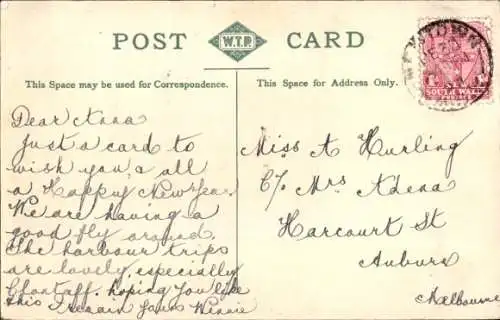 POST W.T.P. CARD
This Space may be used for Correspondence.
This Space for Address Only.
SOUTH WALES
Dear Anna
Just a card to
wish you & all
a Happy New Year
We are having a
good fly around.
The harbour trips
are lovely, especially
Clontaff, hoping you like
this I remain Yours Winnie
Miss A Hurling
C/o Mrs Adena
Harcourt St
Auburn
Melbourne